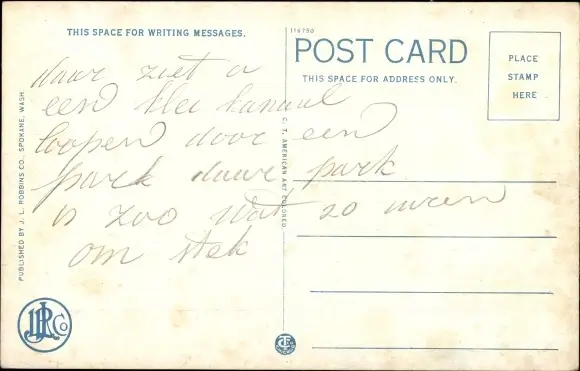 THIS SPACE FOR WRITING MESSAGES.
116750
POST CARD
THIS SPACE FOR ADDRESS ONLY.
PLACE
STAMP
HERE
daar ziet u
een klei kanaal
loopen door een
park daar park
is zoo wat 20
om stek
PUBLISHED BY J. L. ROBBINS CO., SPOKANE, WASH.
C. T. AMERICAN ART COLORED
JLR Co